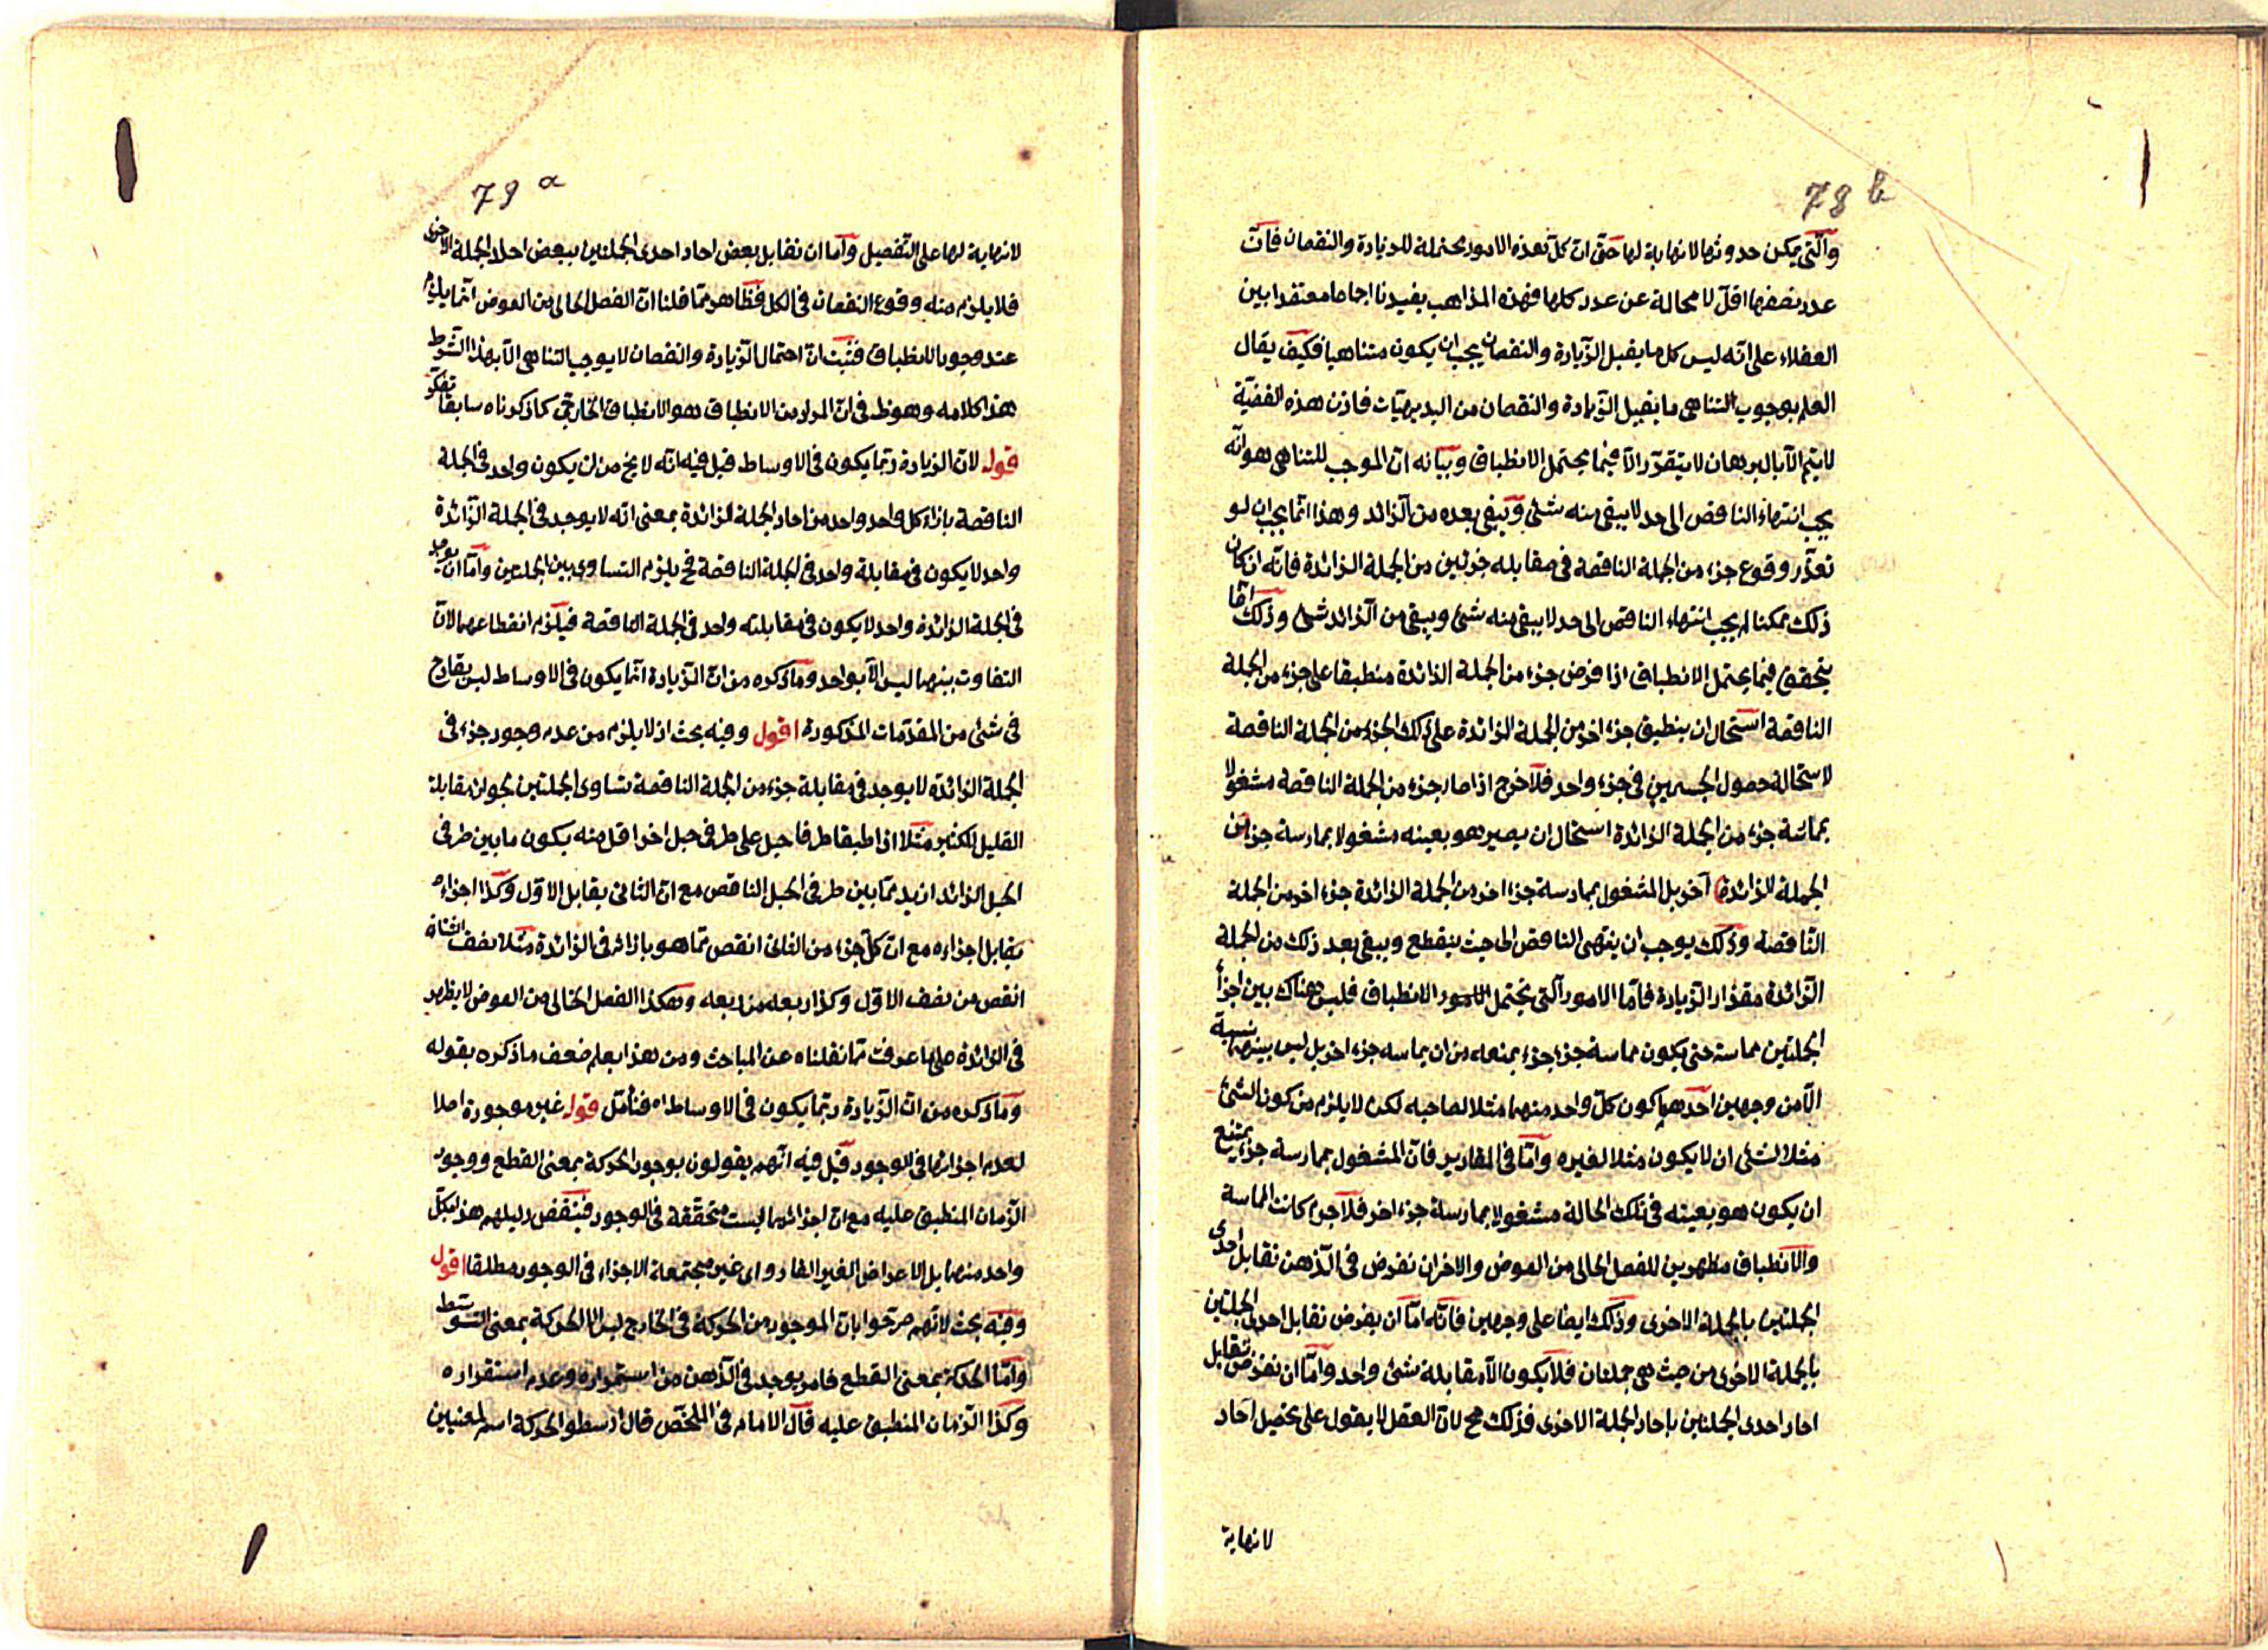 78 b
والتى يمكن حدوثها لا نهاية لها حتى ان كل هذه الامور محتملة للزيادة والنقصان فان
عدد نصفها اقل لا محالة عن عدد كلها فهذه المذاهب يفيدنا اجماعا معتقدا بين
العقلاء على انه ليس كل ما يقبل الزيادة والنقصان يجب ان يكون متناهيا فكيف يقال
العلم بوجوب التناهى ما يقبل الزيادة والنقصان من البديهيات فاذن هذه القضية
لا يتم الا بالبرهان لا يتقرر الا فيما يحتمل الانطباق وبيانه ان الموجب للتناهى هو انه
يجب انتهاء الناقص الى حد لا يبقى منه شئ ويبقى بعده من الزائد وهذا انما يجب ان لو
تعذر وقوع جزء من الجملة الناقصة فى مقابله جزئين من الجملة الزائدة فانه ان كان
ذلك ممكنا لم يجب انتهاء الناقص الى حد لا يبقى منه شئ ويبقى من الزائد شئ وذلك انما
يتحقق فيما يحتمل الانطباق اذا فرض جزء من الجملة الزائدة منطبقا على جزء من الجملة
الناقصة استحال ان ينطبق جزء اخر من الجملة الزائدة على ذلك الجزء من الجملة الناقصة
لاستحالة حصول الجسمين فى جزء واحد فلا خرج اذا صار جزء من الجملة الناقصة مشغولا
بماسة جزء من الجملة الزائدة استحال ان يصير هو بعينه مشغولا بممارسة جزء من
الجملة الزائدة آخر بل المشغول بممارسة جزء اخر من الجملة الزائدة جزء اخر من الجملة
الناقصة وذلك يوجب ان ينتهى الناقص الى حيث ينقطع ويبقى بعد ذلك من الجملة
الزائدة مقدار الزيادة فاما الامور التى تحتمل الامور الانطباق فليس هناك بين اجزأ
الجملتين مماسة حتى يكون مماسة جزء جزء يمنعه من ان يماسه جزء اخر بل ليس بينهما نسبة
الا من وجهين احدهما كون كل واحد منهما مثلا لصاحبه لكن لا يلزم من كون الشئ
مثلا لشئ ان لا يكون مثلا لغيره واما فى المقادير فان المشغول بممارسة جزء يمتنع
ان يكون هو بعينه فى تلك الحالة مشغولا بممارسة جزء اخر فلا جرم كانت المماسة
والانطباق مظهرين للفصل الخالى من العوض والاخر ان نفرض فى الذهن تقابل احدى
الجملتين بالجملة الاخرى وذلك ايضا على وجهين فانه اما ان يفرض تقابل احدى الجملتين
بالجملة الاخرى من حيث هى جملتان فلا يكون الا مقابلة شئ واحد واما ان نفرض تقابل
احاد احدى الجملتين باحاد الجملة الاخرى فذلك مح لان العقل لا يقول على تحصيل احاد
لا نهاية
79 a
لا نهاية لها على التفصيل واما ان نقابل بعض احاد احدى الجملتين ببعض احاد الجملة الاخرى
فلا يلزم منه وقوع النقصان فى الكل فظاهر مما قلنا ان الفصل الخالى من العوض انما يلزم
عند وجوب الانطباق فثبت ان احتمال الزيادة والنقصان لا يوجب التناهى الا بهذا الشرط
هذا كلامه وهو ظ فى ان المراد من الانطباق هو الانطباق الخارجى كما ذكرناه سابقا تفكر
قوله لان الزيادة ربما يكون فى الاوساط قيل فيه انه لا يخ من ان يكون واحد فى الجملة
الناقصة بازاء كل واحد واحد من احاد الجملة الزائدة بمعنى انه لا يوجد فى الجملة الزائدة
واحد لا يكون فى مقابلة واحد فى الجملة الناقصة فح يلزم التساوى بين الجملتين واما ان يوجد
فى الجملة الزائدة واحد لا يكون فى مقابلته واحد فى الجملة الناقصة فيلزم انقطاعهما لان
التفاوت بينهما ليس الا بواحد وما ذكره من ان الزيادة انما يكون فى الاوساط ليس بقادح
فى شئ من المقدمات المذكورة اقول وفيه بحث اذ لا يلزم من عدم وجود جزء فى
الجملة الزائدة لا يوجد فى مقابلة جزء من الجملة الناقصة تساوى الجملتين لجواز مقابلة
القليل للكثير مثلا اذا طبقا طرفا حبل على طرفى حبل اخر اقل منه يكون ما بين طرفى
الحبل الزائد ازيد مما بين طرفى الحبل الناقص مع ان الثانى يقابل الاول وكذا اجزاءه
يقابل اجزاءه مع ان كل جزء من الثانى انقص مما هو بازائه فى الزائدة مثلا نصف الثانى
انقص من نصف الاول وكذا ربعه من ربعه وهكذا الفصل الخالى من العوض لا يظهر
فى الزائدة على ما عرفت مما نقلناه عن المباحث ومن هذا يعلم ضعف ما ذكره بقوله
وما ذكره من ان الزيادة ربما يكون فى الاوساط اه فتأمل قوله غير موجودة اصلا
لعدم اجزائها فى الوجود قيل فيه انهم يقولون بوجود الحركة بمعنى القطع ووجود
الزمان المنطبق عليه مع ان اجزائهما ليست متحققة فى الوجود فينقض دليلهم هذا بكل
واحد منهما بل الاعراض الغير القار واى غير مجتمعة الاجزاء فى الوجود مطلقا اقول
وفيه بحث لانهم صرحوا بان الموجود من الحركة فى الخارج ليس الا الحركة بمعنى التوسط
واما الحركة بمعنى القطع فامر يوجد فى الذهن من استمراره وعدم استقراره
وكذا الزمان المنطبق عليه قال الامام فى الملخص قال ارسطو الحركة اسم لمعنيين